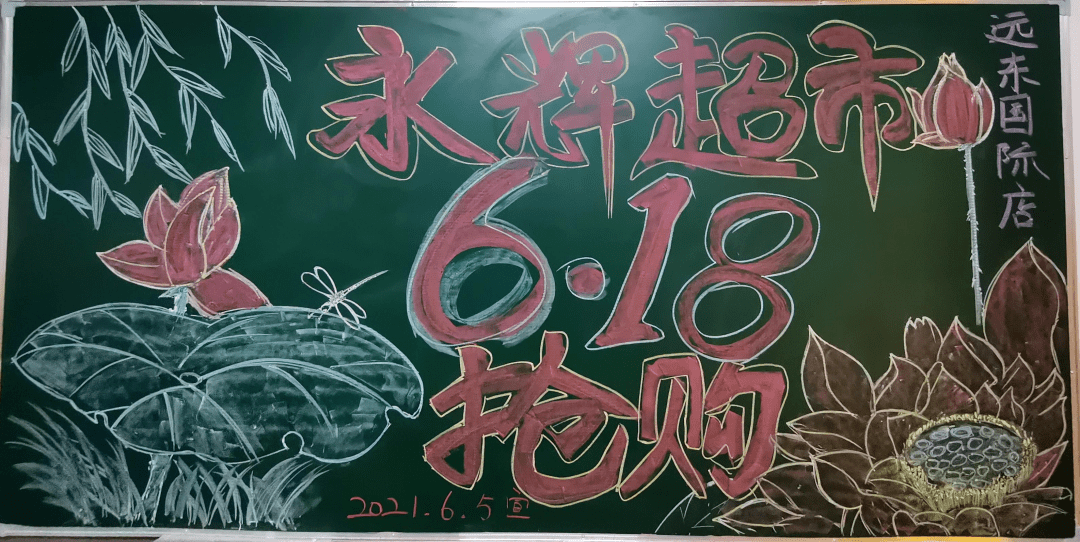 永辉超市
6·18
抢购
远东国际店
2021.6.5宣